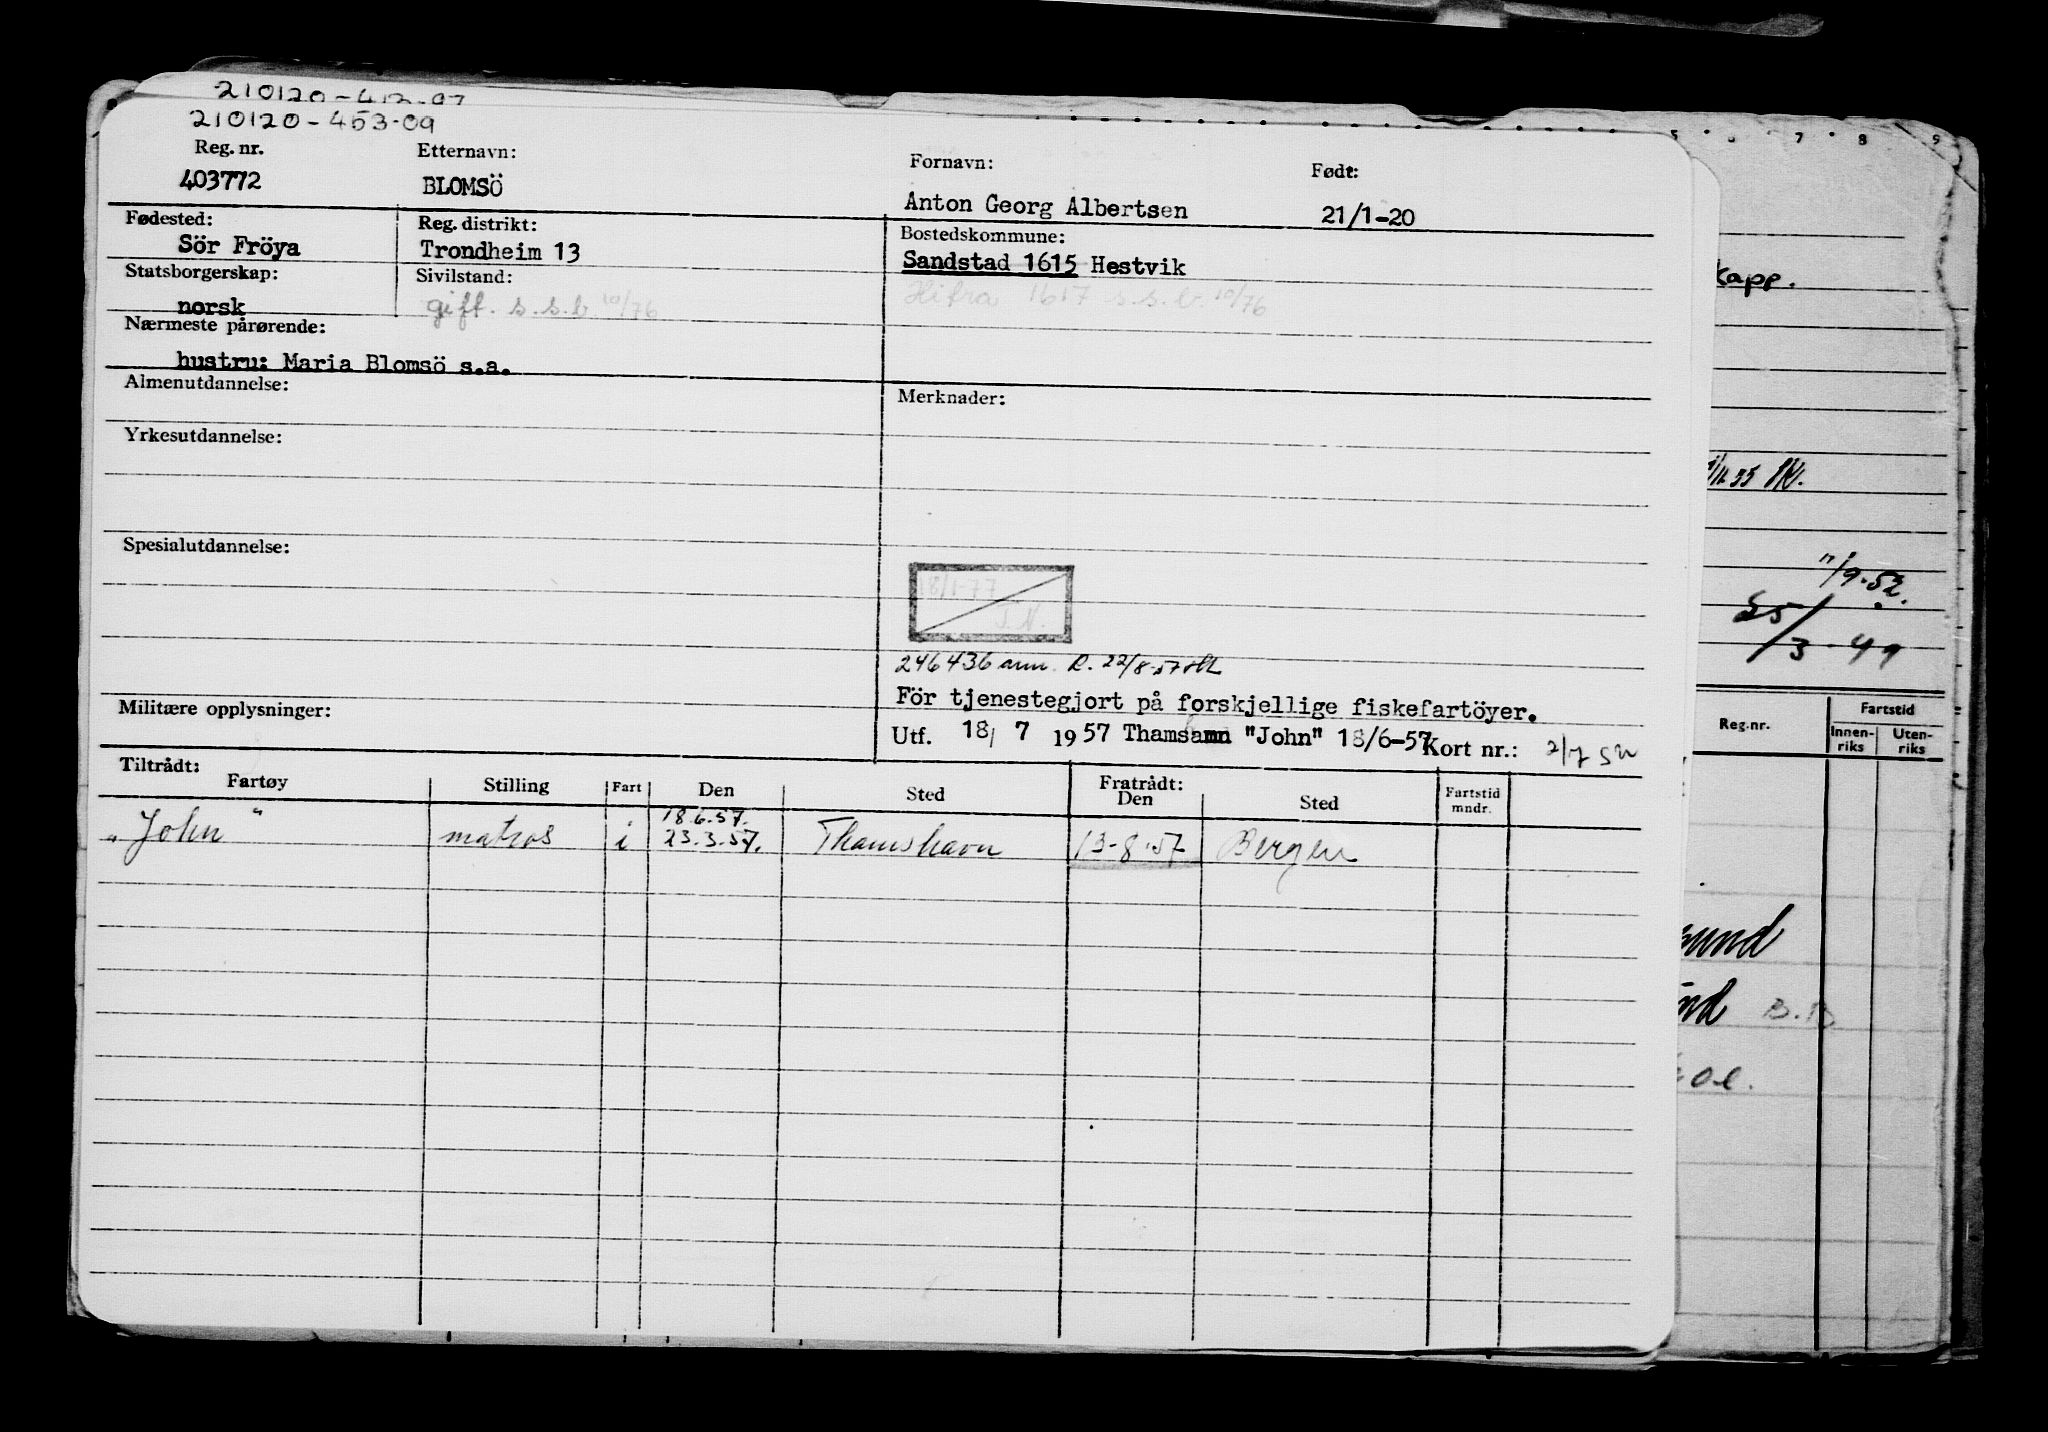 210120-453-09
Reg. nr. Etternavn: Fornavn: Født:
403772 BLOMSÖ Anton Georg Albertsen 21/1-20
Fødested: Reg. distrikt: Bostedskommune:
Sör Fröya Trondheim 13 Sandstad 1615 Hestvik
Statsborgerskap: Sivilstand:
norsk gift. s.s.b. 10/76 Hitra 1617 s.s.b. 10/76
Nærmeste pårørende:
hustru: Maria Blomsö s.a.
Almenutdannelse: Merknader:
Yrkesutdannelse:
Spesialutdannelse:
18/1-77
J.N.
246436 ann. R. 22/8-57
För tjenestegjort på forskjellige fiskefartöyer.
Militære opplysninger:
Utf. 18/ 7 1957 "John" 18/6-57 Kort nr.: 2/7
Tiltrådt: Fratrådt:
Fartøy Stilling Fart Den Sted Den Sted Fartstid mndr.
18.6.57.
"John" matros i 23.3.57. Thamshavn 13-8-57 Bergen
5 6 7 8 9
kapp.
11/9.52.
25/3-49
Reg.nr. Fartstid
Innen-riks Uten-riks
sund
nd B.B